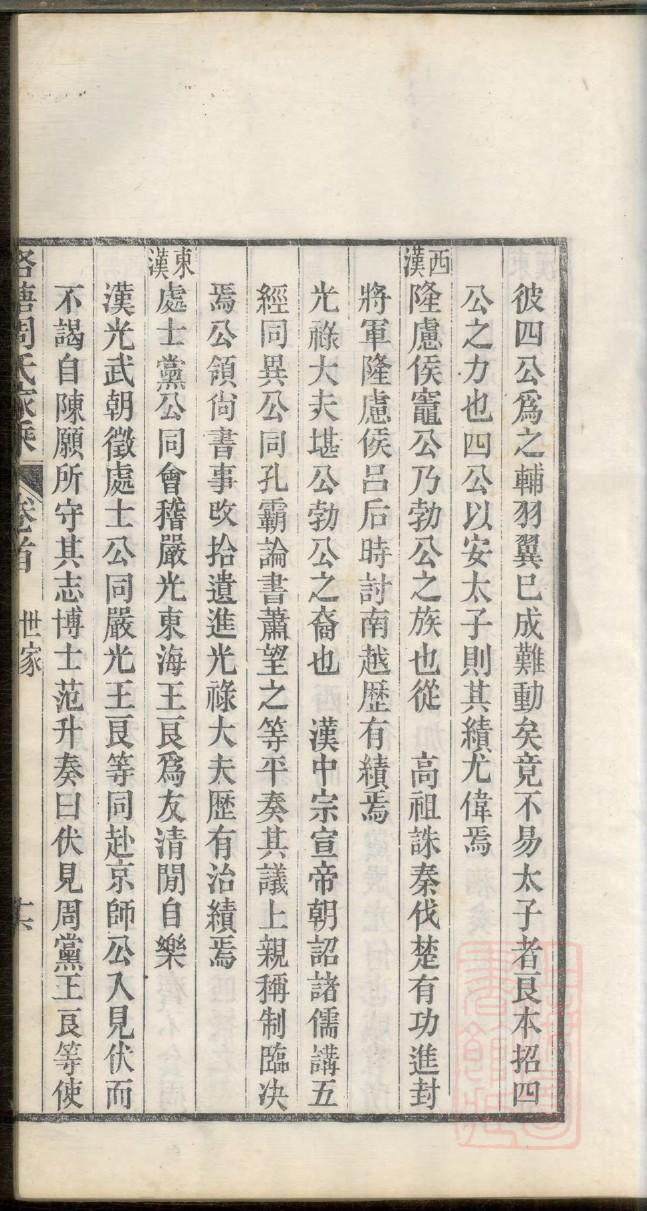 彼四公爲之輔羽翼已成難動矣竟不易太子者良本招四
公之力也四公以安太子則其績尤偉焉
西漢
隆慮侯竈公乃勃公之族也從　高祖誅秦伐楚有功進封
將軍隆慮侯呂后時討南越歷有績焉
光祿大夫堪公勃公之裔也　漢中宗宣帝朝詔諸儒講五
經同異公同孔霸論書蕭望之等平奏其議上親稱制臨决
焉公領尙書事改拾遺進光祿大夫歷有治績焉
東漢
處士黨公同會稽嚴光東海王良爲友清閒自樂
漢光武朝徵處士公同嚴光王良等同赴京師公入見伏而
不謁自陳願所守其志博士范升奏曰伏見周黨王良等使
周氏家乘　卷首　世家